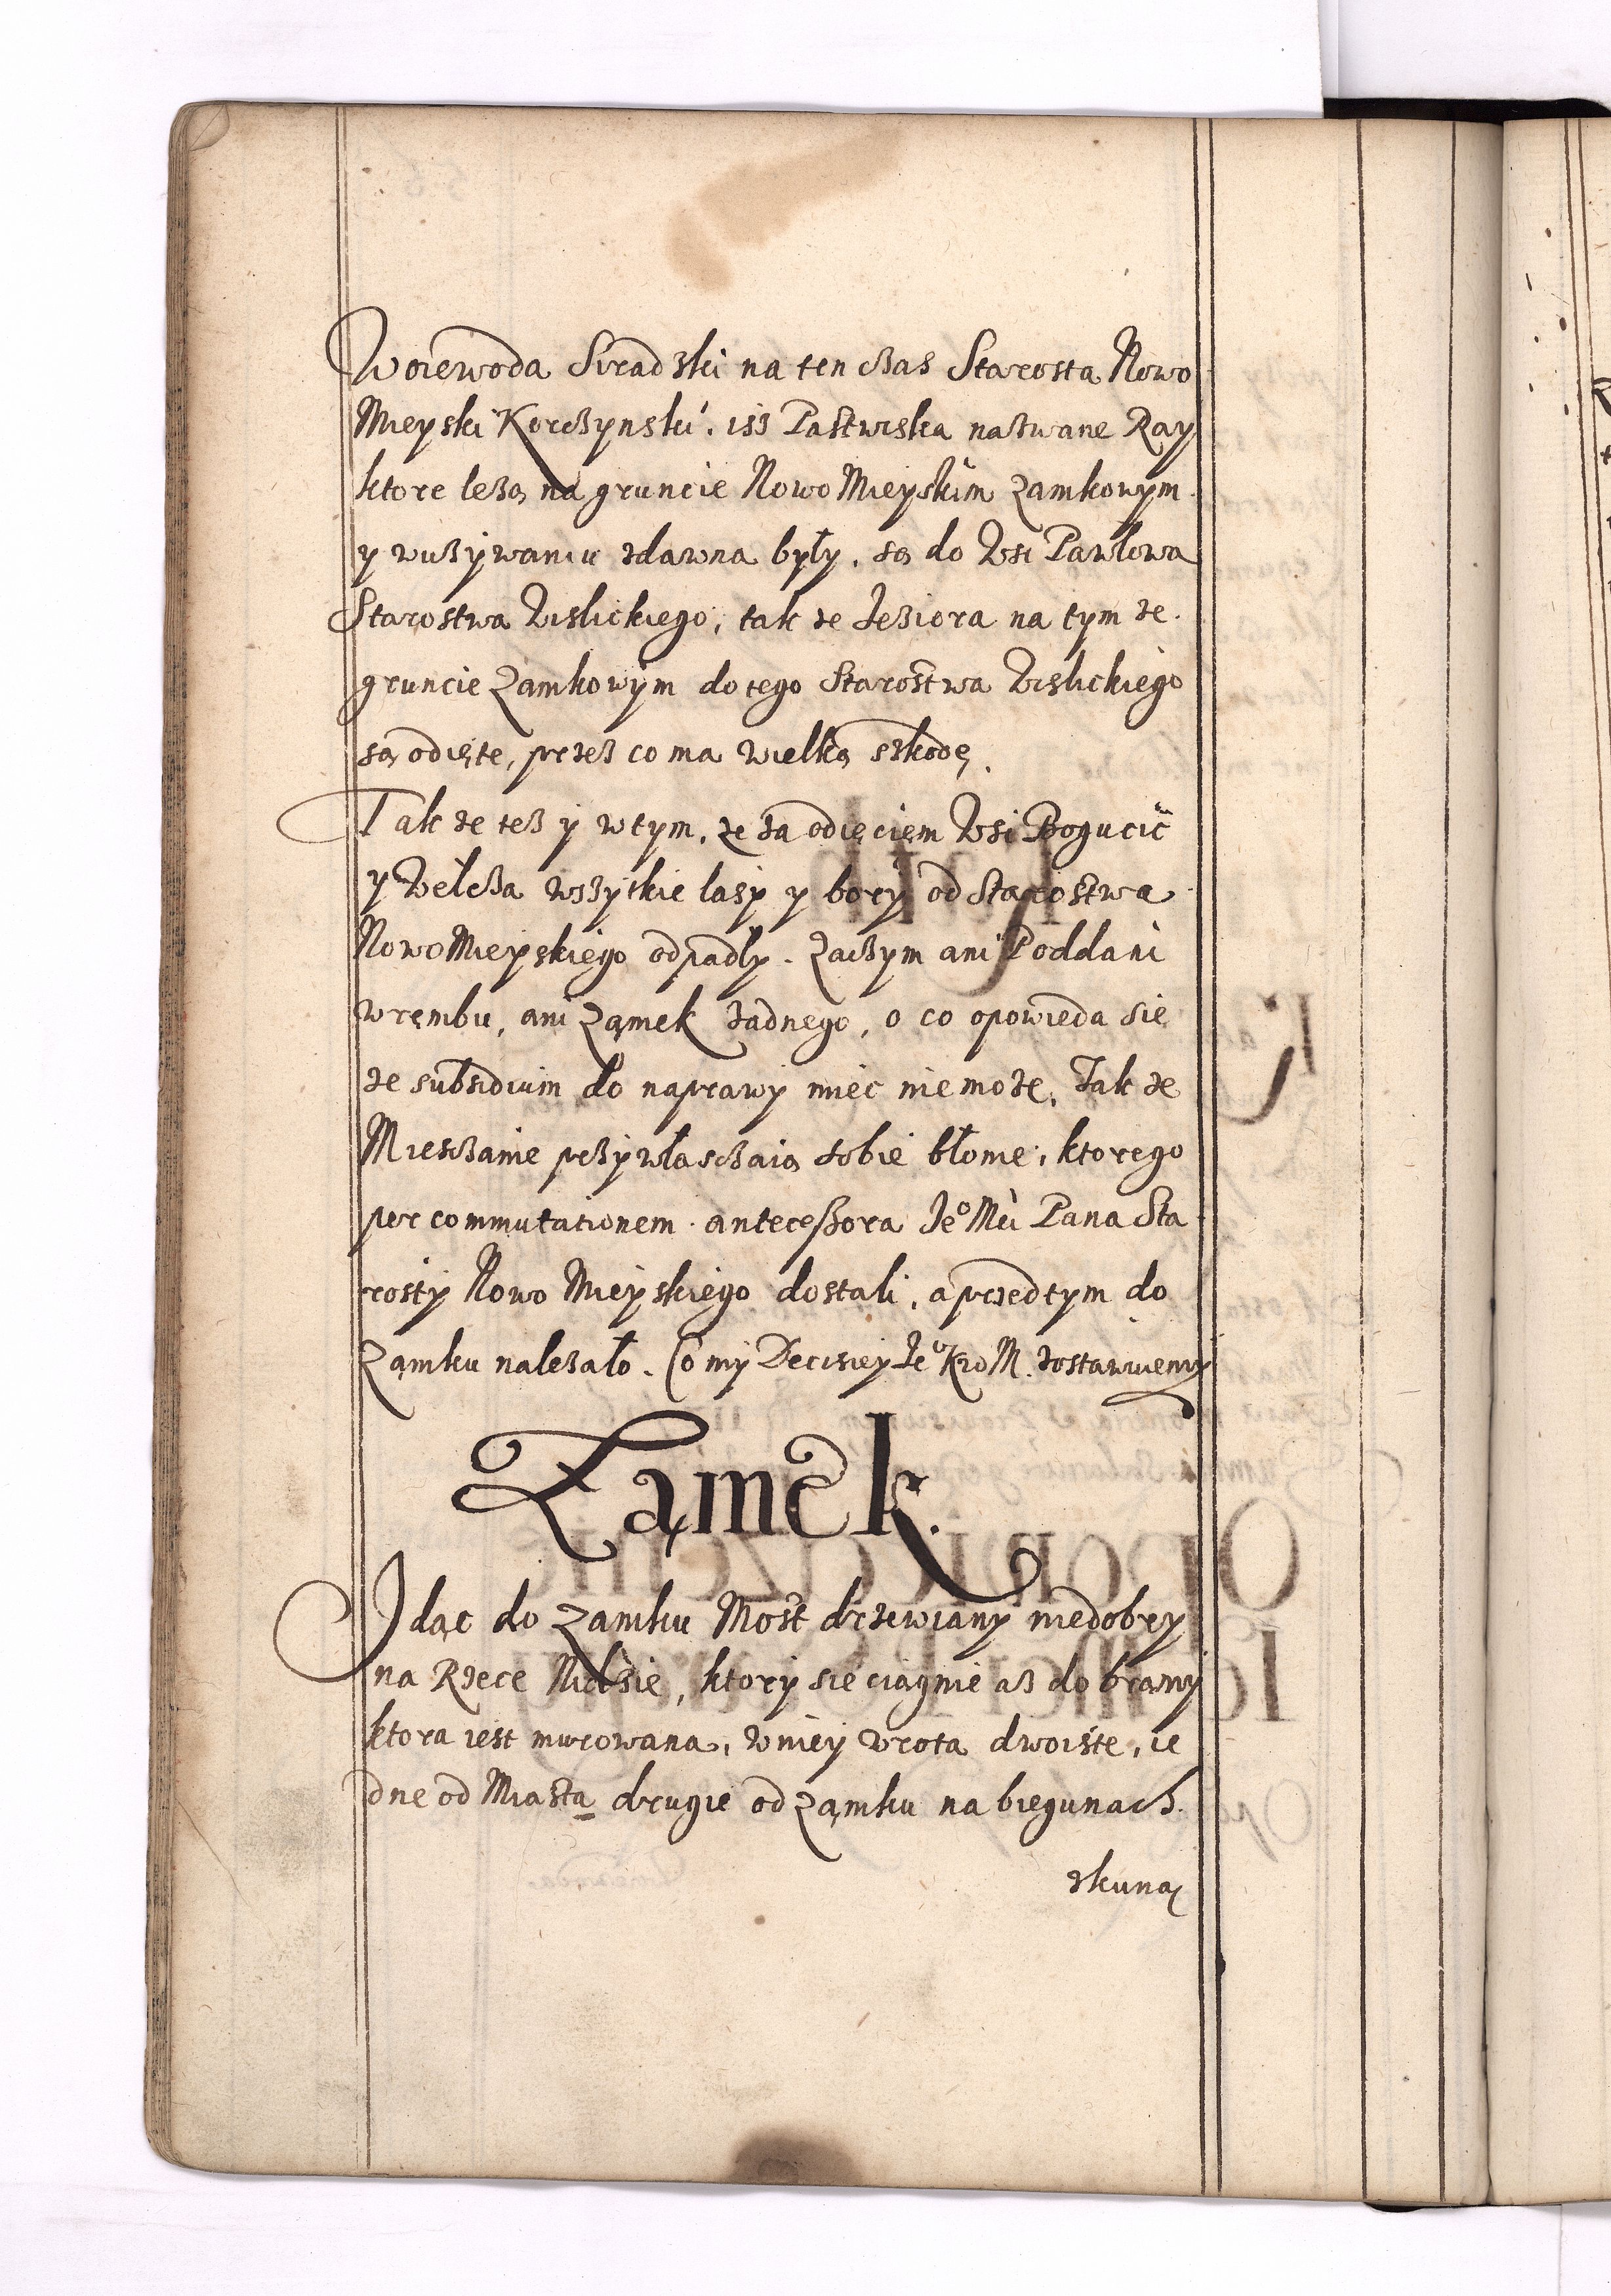 Woiewoda Siradzki na ten czas Starosta Nowo
Mieyski Korczynski. isz Pastwiska nazwane Ray
ktore leżą na gruncie Nowo Mieyskim Zamkowym.
y wużywaniu zdawna były. są do Wsi Pawłowa
Starostwa Wislickiego, tak ze Jeziora na tym ze.
gruncie Zamkowym do tego Starostwa Wislickiego
są odięte, przez co ma wielką szkodę.
Tak ze też y wtym, ze za odięciem Wsi Bogucic
y Wełcza wszytkie lasy y bory od Starostwa
NowoMieyskiego odpadły. Zaczym ani Poddani
wrembu, ani Zamek żadnego, o co opowieda sie
ze subsidium do naprawy mieć nie może. Tak ze
Mieszczanie przywłaszczaią sobie błonie, ktorego
per commutationem antecessora Jeº Mci Pana Sta
rosty Nowo Mieyskiego dostali, a przedtym do
Zamku należało. Co my Decisiey Jeº Kro M. zostawuiemy
Zamek.
Idąc do Zamku Most drzewiany niedobry
na Rzece Nidzie, ktory sie ciągnie aż do bramy
ktora iest murowana, wniey wrota dwoiste, ie
dne od Miasta drugie od Zamku na biegunach.
zkuną